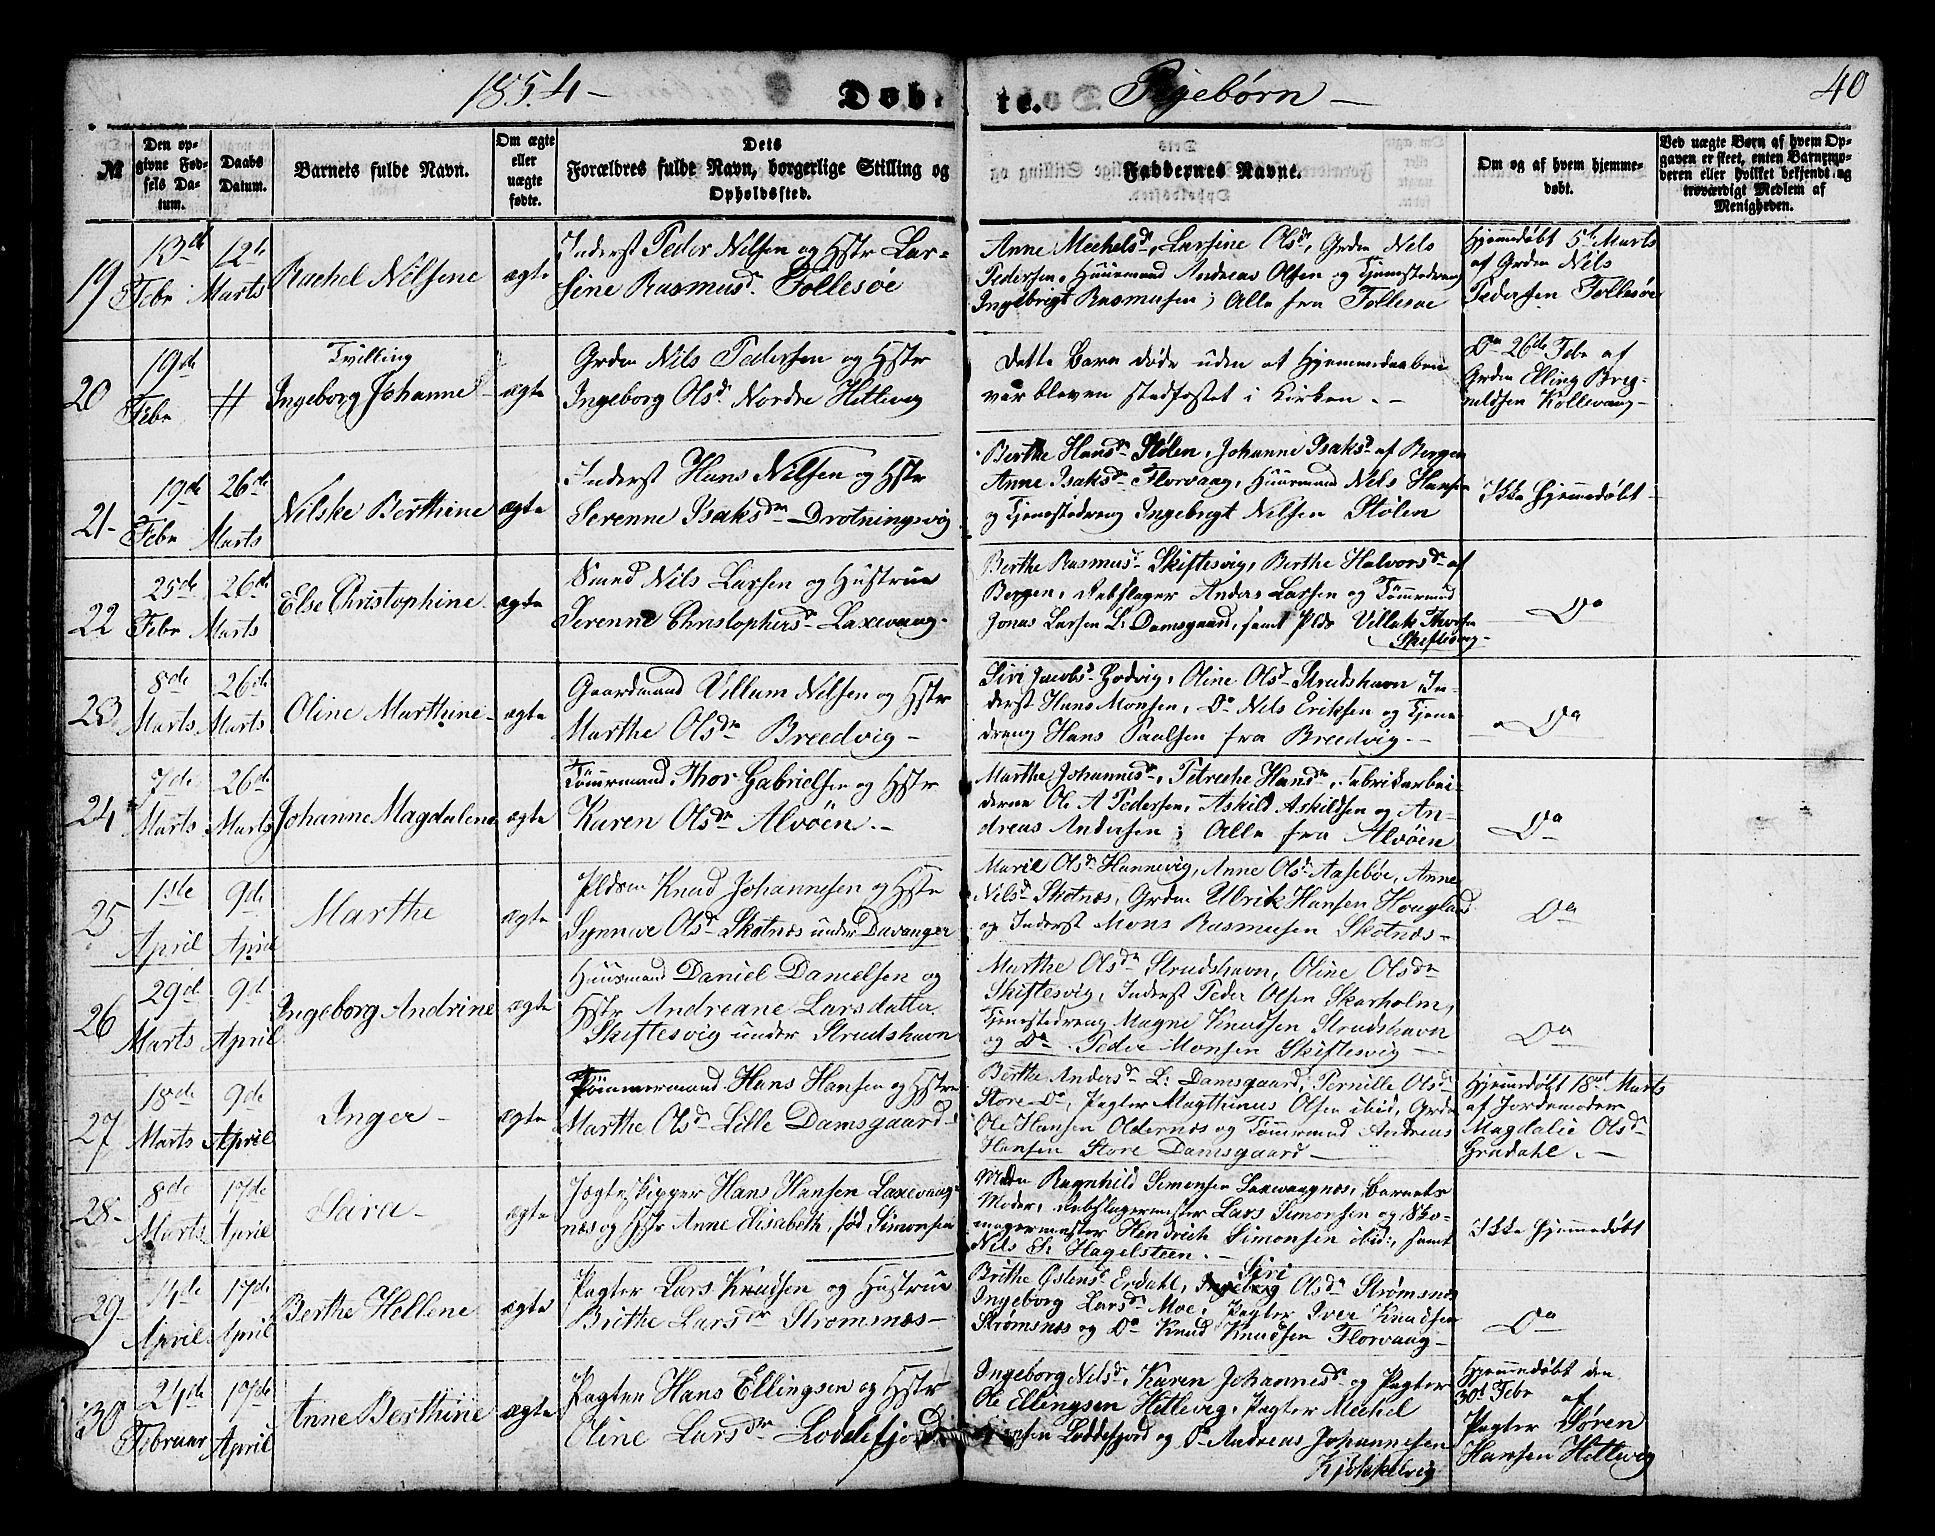 1854 –
Døbte.
Pigebørn –
40
№
Den opgivne Fødsels Datum.
Daabs Datum.
Barnets fulde Navn.
Om ægte eller uægte fødte.
Dets Forældres fulde Navn, borgerlige Stilling og Opholdssted.
Faddernes Navne.
Om og af hvem hjemmedøbt.
Ved uægte Børn af hvem Opgaven er skeet, enten Barnemoderen eller hvilket bekjendt og troværdigt Medlem af Menigheden.
19
13de Febr
12te Marts
Rachel Nilsine
ægte
Inderst Peder Nilsen og Hstr Lar-
sine Rasmusd. Follesøe
Anne Mechelsd., Larsine Olsd., Grdm Nils
Pedersen, Huusmand Andreas Olsen og Tjenestedreng
Ingebrigt Rasmusen; Alle fra Follesøe
Hjemmedøbt 5te Marts
af Grdm Nils
Pedersen Follesøe
20
19de Febr
#
Tvilling
Ingeborg Johanne
ægte
Grdm Nils Pedersen og Hstr
Ingeborg Olsd. Nordre Hetlevig
Dette Barn døde uden at Hjemmedaaben
var bleven stadfæstet i Kirken. –
Do 26de Febr af
Grdm Elling Breg-
nildsen Kollevaag –
21 –
19de Febr
26de Marts
Nilske Berthine
ægte
Inderst Hans Nilsen og Hstr
Serenne Isaksdr Drotningsvig
Berthe Hansd. Stølen, Johanne Isaksd. af Bergen
Anne Isaksd. Florvaag, Huusmand Nils Hansen
og Tjenestedreng Ingebrigt Nilsen Stølen
Ikke hjemmedøbt –
22
25de Febr
26de Marts
Else Christophine
ægte
Smed Nils Larsen og Hustrue
Serenne Christophersd. Laxevaag –
Berthe Rasmusd. Skiftesvig, Berthe Halvorsd. af
Bergen, Rebslager Anders Larsen og Tømrmnd
Jonas Larsen L: Damsgaard, samt Plds Villak Thorsen
Skiftesvig –
Do
23
8de Marts
26de Marts
Oline Marthine –
ægte
Gaardmand Villum Nilsen og Hstr
Marthe Olsdr Breedvig –
Siri Jacobsd. Godvig, Oline Olsd. Strudshavn In-
derst Hans Monsen, Do Nils Eriksen og Tjene-
dreng Hans Paulsen fra Breedvig. –
Do
24
7de Marts
26de Marts
Johanne Magdalena
ægte
Tømrmand Thor Gabrielsen og Hstr
Karen Olsdr Alvøen. –
Marthe Johannesd., Petreche Hansdr, Fabrikarbei-
derne Ole A Pedersen, Askild Askildsen og An-
dreas Andersen; Alle fra Alvøen
Do
25
1ste April
9de April
Marthe
ægte
Pldsm Knud Johannesen og Hstr
Synneve Olsd. Skotnæs under Davanger
Marie Olsdr Hannevig, Anne Olsd. Aasebøe, Anne
Nilsd. Skotnæs, Grdm Ulrik Hansen Hougland
og Inderst Mons Rasmusen Skotnæs –
Do
26
29de Marts
9d April
Ingeborg Andrine
ægte
Huusmand Daniel Danielsen og
Hstr Andreane Larsdatter
Skiftesvig under Strudshavn
Marthe Olsdr Strudshavn, Oline Olsdr
Skiftesvig, Inderst Peder Olsen Skarholm,
Tjenestedreng Magne Knudsen Strudshavn
og Do Peder Monsen Skiftesvig –
Do
27
18de Marts
9de April
Inger –
ægte
Tømmermand Hans Hansen og Hstr
Marthe Olsd. Lille Damsgaard –
Berthe Andersd. L: Damsgaard, Pernille Olsd.
Store Do, Pagter Magthinus Olsen ibid, Grdm
Ole Hansen Oldernæs og Tømrmand Andreas
Hansen Store Damsgaard –
Hjemmedøbt 18de Marts
af Jordemoder
Magdalie Olsd.
Gravdahl. –
28 –
8de Marts
17de April
Sara –
ægte
Jægteskipper Hans Hansen Laxevaag-
næs og Hstr Anne Elisabeth, fød Simonsen
Mdm Ragnhild Simonsen Laxevaagnæs, Barnets
Moder, Rebslagermester Lars Simonsen og Sko-
magermester Hendrich Simonsen ibid:, samt
Nils Hagelsteen. –
Ikke hjemmedøbt
29 –
14de April
17de April
Berthe Hellene
ægte
Pagter Lars Knudsen og Hustrue
Brithe Larsdr Strømsnæs –
Brithe Østensd. Erdahl, Siri Olsdr Strømsnæs
Ingeborg Larsd. Moe, Pagter Iver Knudsen
Strømsnæs og Do Knud Knudsen Florvaag –
Do
30
24de Februar
17de April
Anne Berthine
ægte
Pagter Hans Ellingsen og Hstr
Oline Larsdr Loddefjord
Ingeborg Nilsd., Karen Johannesd. og Pagter
Ole Ellingsen Hetlevig, Pagter Mechel
Loddefjord og Do Andreas Johannesen
Kjøkkelvig
Hjemmedøbt den
30d Febr af
Pagter Søren
Hansen Hetlevig